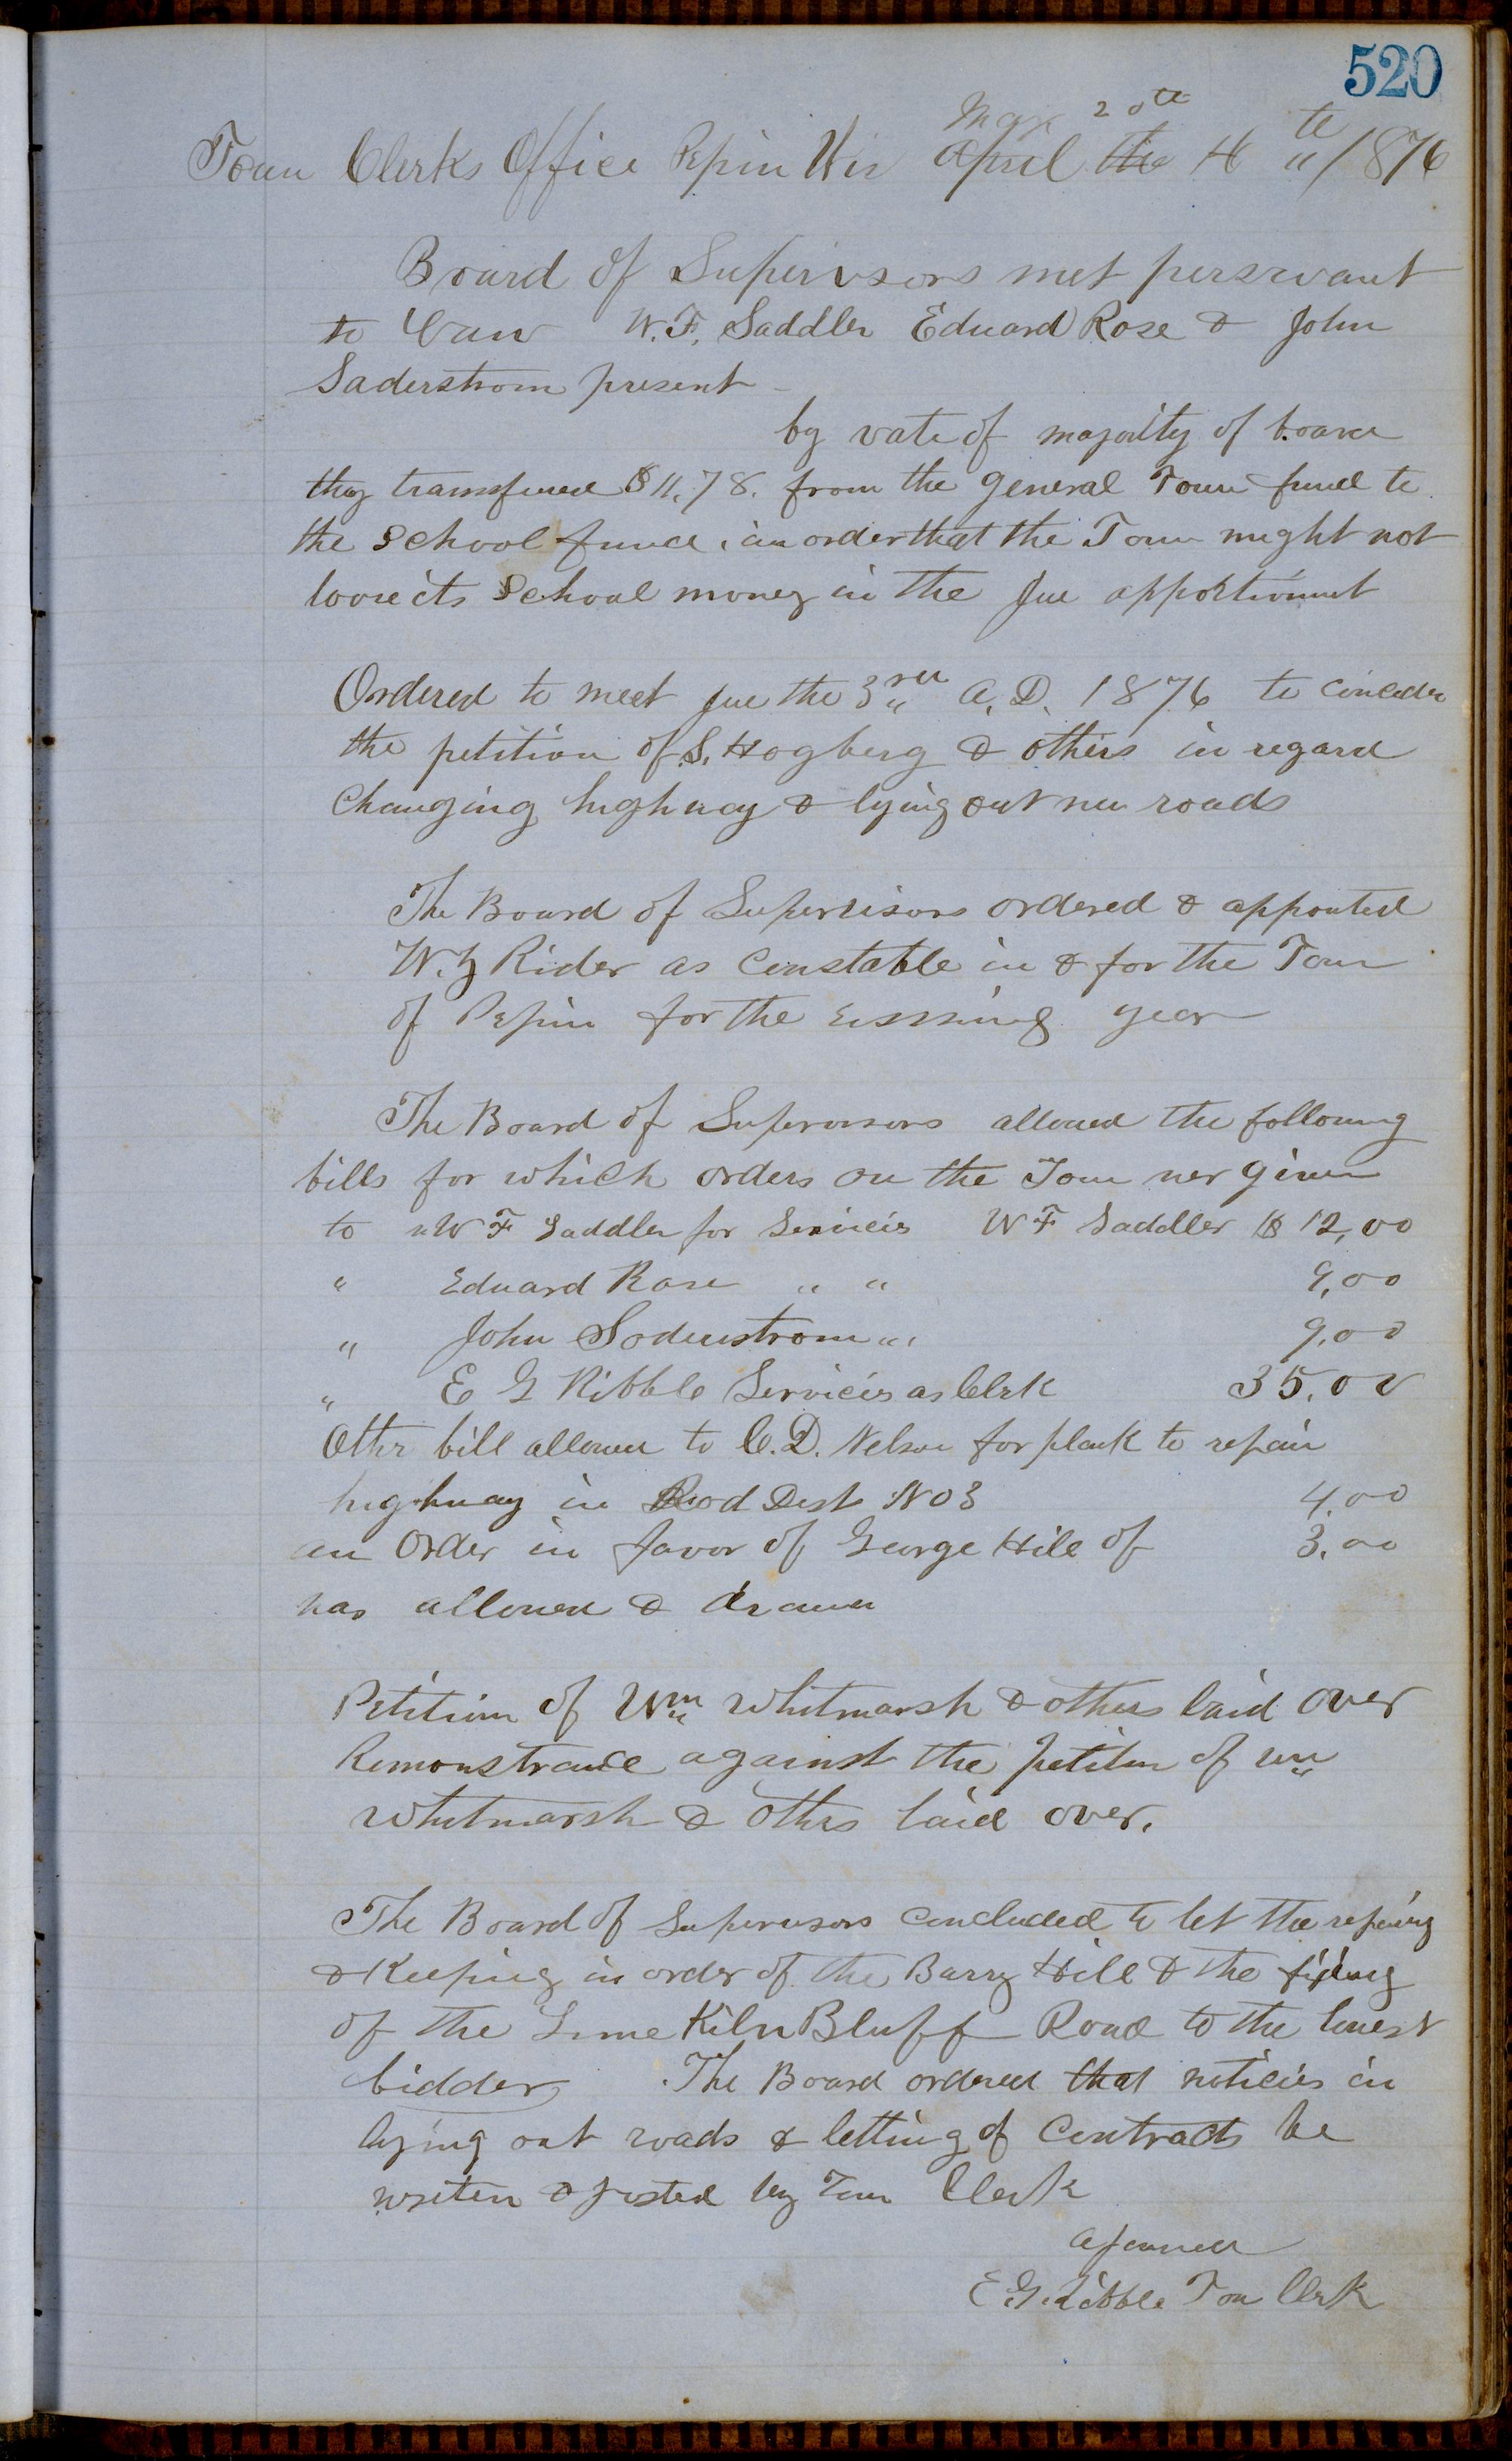 520
Mar 20th
Town Clerks Office Pepin Wis April the 4th /1876
Board of Supervisors met perswant
to Law W. F. Saddler Edward Rose & John
Saderstrom present
by vote of majority of board
they transfered $11,78. from the general Town fund to
the School fund, in order that the Town might not
loose its School money in the Jue apportionmt
Ordered to meet Jue the 3rd A. D. 1876 to Conceder
the petition of S. Hogberg & others in regard
Changing highway & lying out new roads
The Board of Supervisors ordered & apponted
W. Rider as Constable in & for the Town
of Pepin for the year
The Board of Supervisors allowed the following
bills for which orders on the Town wer given
to W F Saddler for Servicis W F Saddler $ 12,00
" Edward Rose " " 9,00
" John Soderstrom " " 9,00
" E G Ribble Servicis as Clerk 35.00
Othr bill allowed to C. D. Nelson for plank to repair
highway in Rod Dist No 3 4.00
an Order in favor of George Hill of 3.00
was allowed & drawn
Petition of Wm Whitmarsh & others laid over
Remonstrance against the petiton of Wm
Whitmarsh & othrs laid over.
The Board of Supervisors Concluded to let the repairing
& Keeping in order of the Barry Hill & the fixing
of the Lime Kiln Bluff Road to the lowest
bidder. The Board ordered that noticies in
lying out roads & letting of Contracts be
writen & posted by Town Clerk
E. G. Ribble Ton Clerk